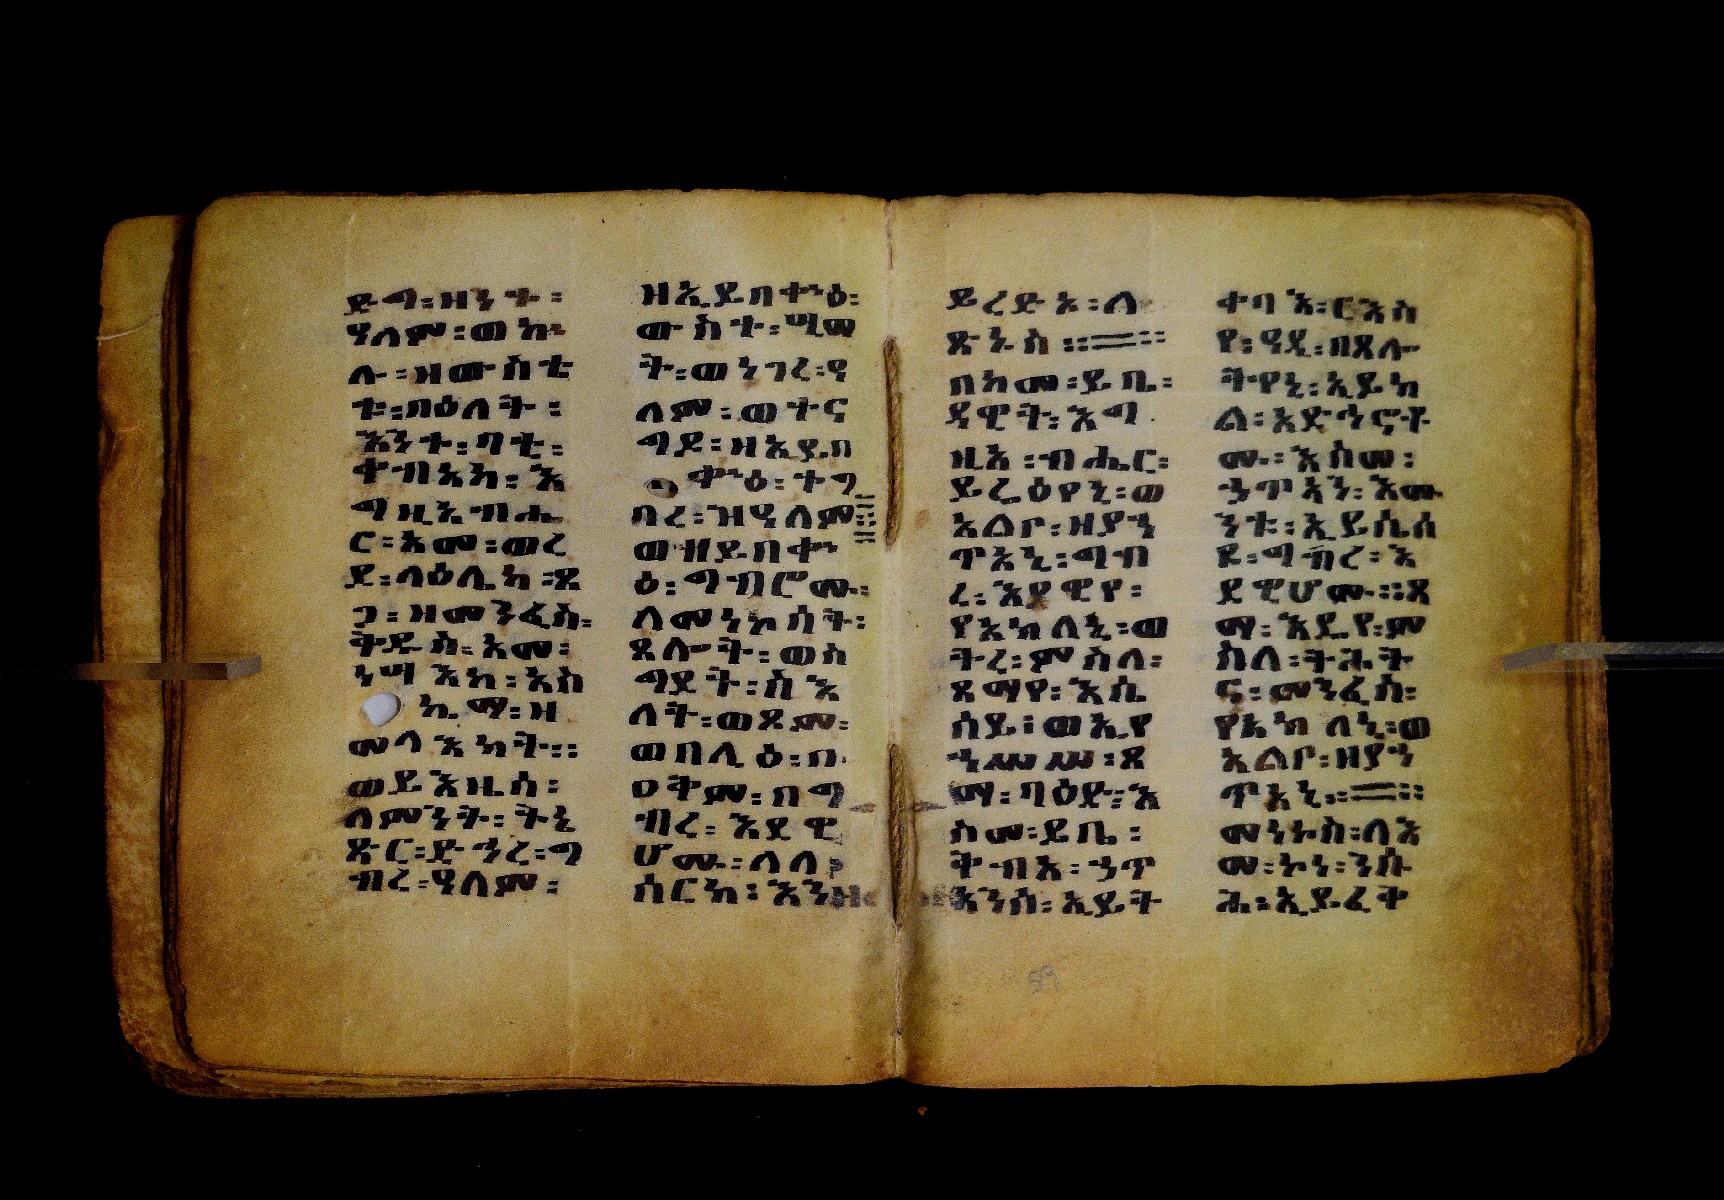 ይግ፡ዘንቱ፡
ዓለም፡ወኵ፡
ሉ፡ዘውስቴ
ቱ፡በዕለት፡
እንተ፡ባቲ፡
ተብእከ፡እ
ግዚአብሔ
ር፡እመ፡ወረ
ደ፡ላዕሌከ፡ጸ
ጋ፡ዘመንፈስ፡
ቅዱስ፡እመ፡
ነሣእከ፡እስ
ኪማ፡ዘ
መላእክት።
ወይእዜሰ፡
ለምንት፡ትኔ
ጽር፡ድኅረ፡ግ
ብረ፡ዓለም፡
ዘኢይበቍዕ፡
ውስተ፡ሢመ
ት፡ወነገረ፡ዓ
ለም፡ወተና
ግዶ፡ዘኢይበ
ቍዕ፡ተግ
ባረ፡ዝዓለም፡
ወዘይበቍ
ዕ፡ግብሮሙ፡
ለመነኮሳት፡
ጸሎት፡ወስ
ግደት፡ስእ
ለት፡ወጾም፡
ወበሊዕ፡በ
ዐቅም፡በግ
ብረ፡እደዊ
ሆሙ፡ለለ፩
ሰርክ፡እንዘ
ይረድኡ፡ለ
ጽኑስ።
በከመ፡ይቤ፡
ዳዊት፡እግ
ዚእ፡ብሔር፡
ይሬዕየኒ፡ወ
አልቦ፡ዘያኀ
ጥአኒ፡ግብ
ረ፡እደዊየ፡
የአክለኒ፡ወ
ትረ፡ምስለ፡
ጾማየ፡እሴ
ሰይ፡ወኢየ
ኀሥሥ፡ጾ
ማ፡ባዕድ፡እ
ስመ፡ይቤ፡
ትብእ፡ኃጥ
እንሰ፡ኢይት
ቀባእ፡ርእስ
የ፡ዓዲ፡በጸሎ
ትየኒ፡ኢይክ
ል፡አድኅኖቶ
ሙ፡እስመ፡
ኃጥኣን፡እሙ
ንቱ፡ኢይሴሰ
ዩ፡ግብረ፡እ
ደዊሆሙ።ጾ
ማ፡እዴየ፡ም
ስለ፡ትሕት
ና፡መንፈስ፡
የአክለኒ፡ወ
አልቦ፡ዘያኀ
ጥአኒ።
መነኮስ፡ለእ
መ፡ኮነ፡ንሱ
ሕ፡ኢይፈቅ